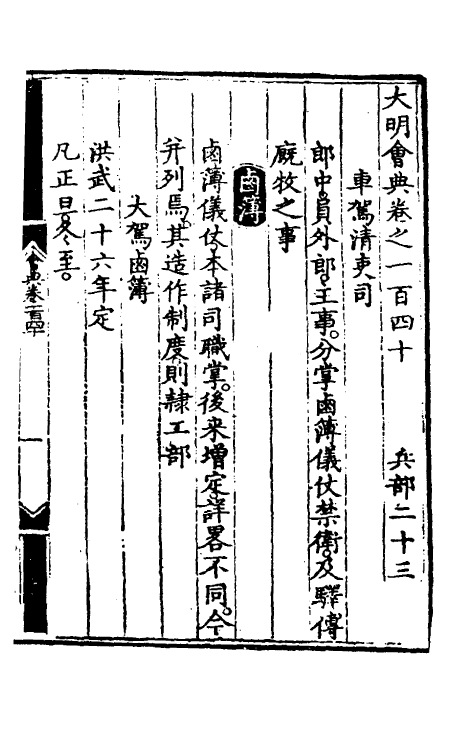 大明會典卷之一百四十 兵部二十三
車駕清吏司
郎中員外郎主事。分掌鹵簿儀仗禁衛。及驛傳
廐牧之事
鹵簿
鹵簿儀仗本諸司職掌。後来增定詳畧不同。今
并列焉。其造作制度則隷工部
大駕鹵簿
洪武二十六年定
凡正旦。冬至。
會典卷一百四十
一